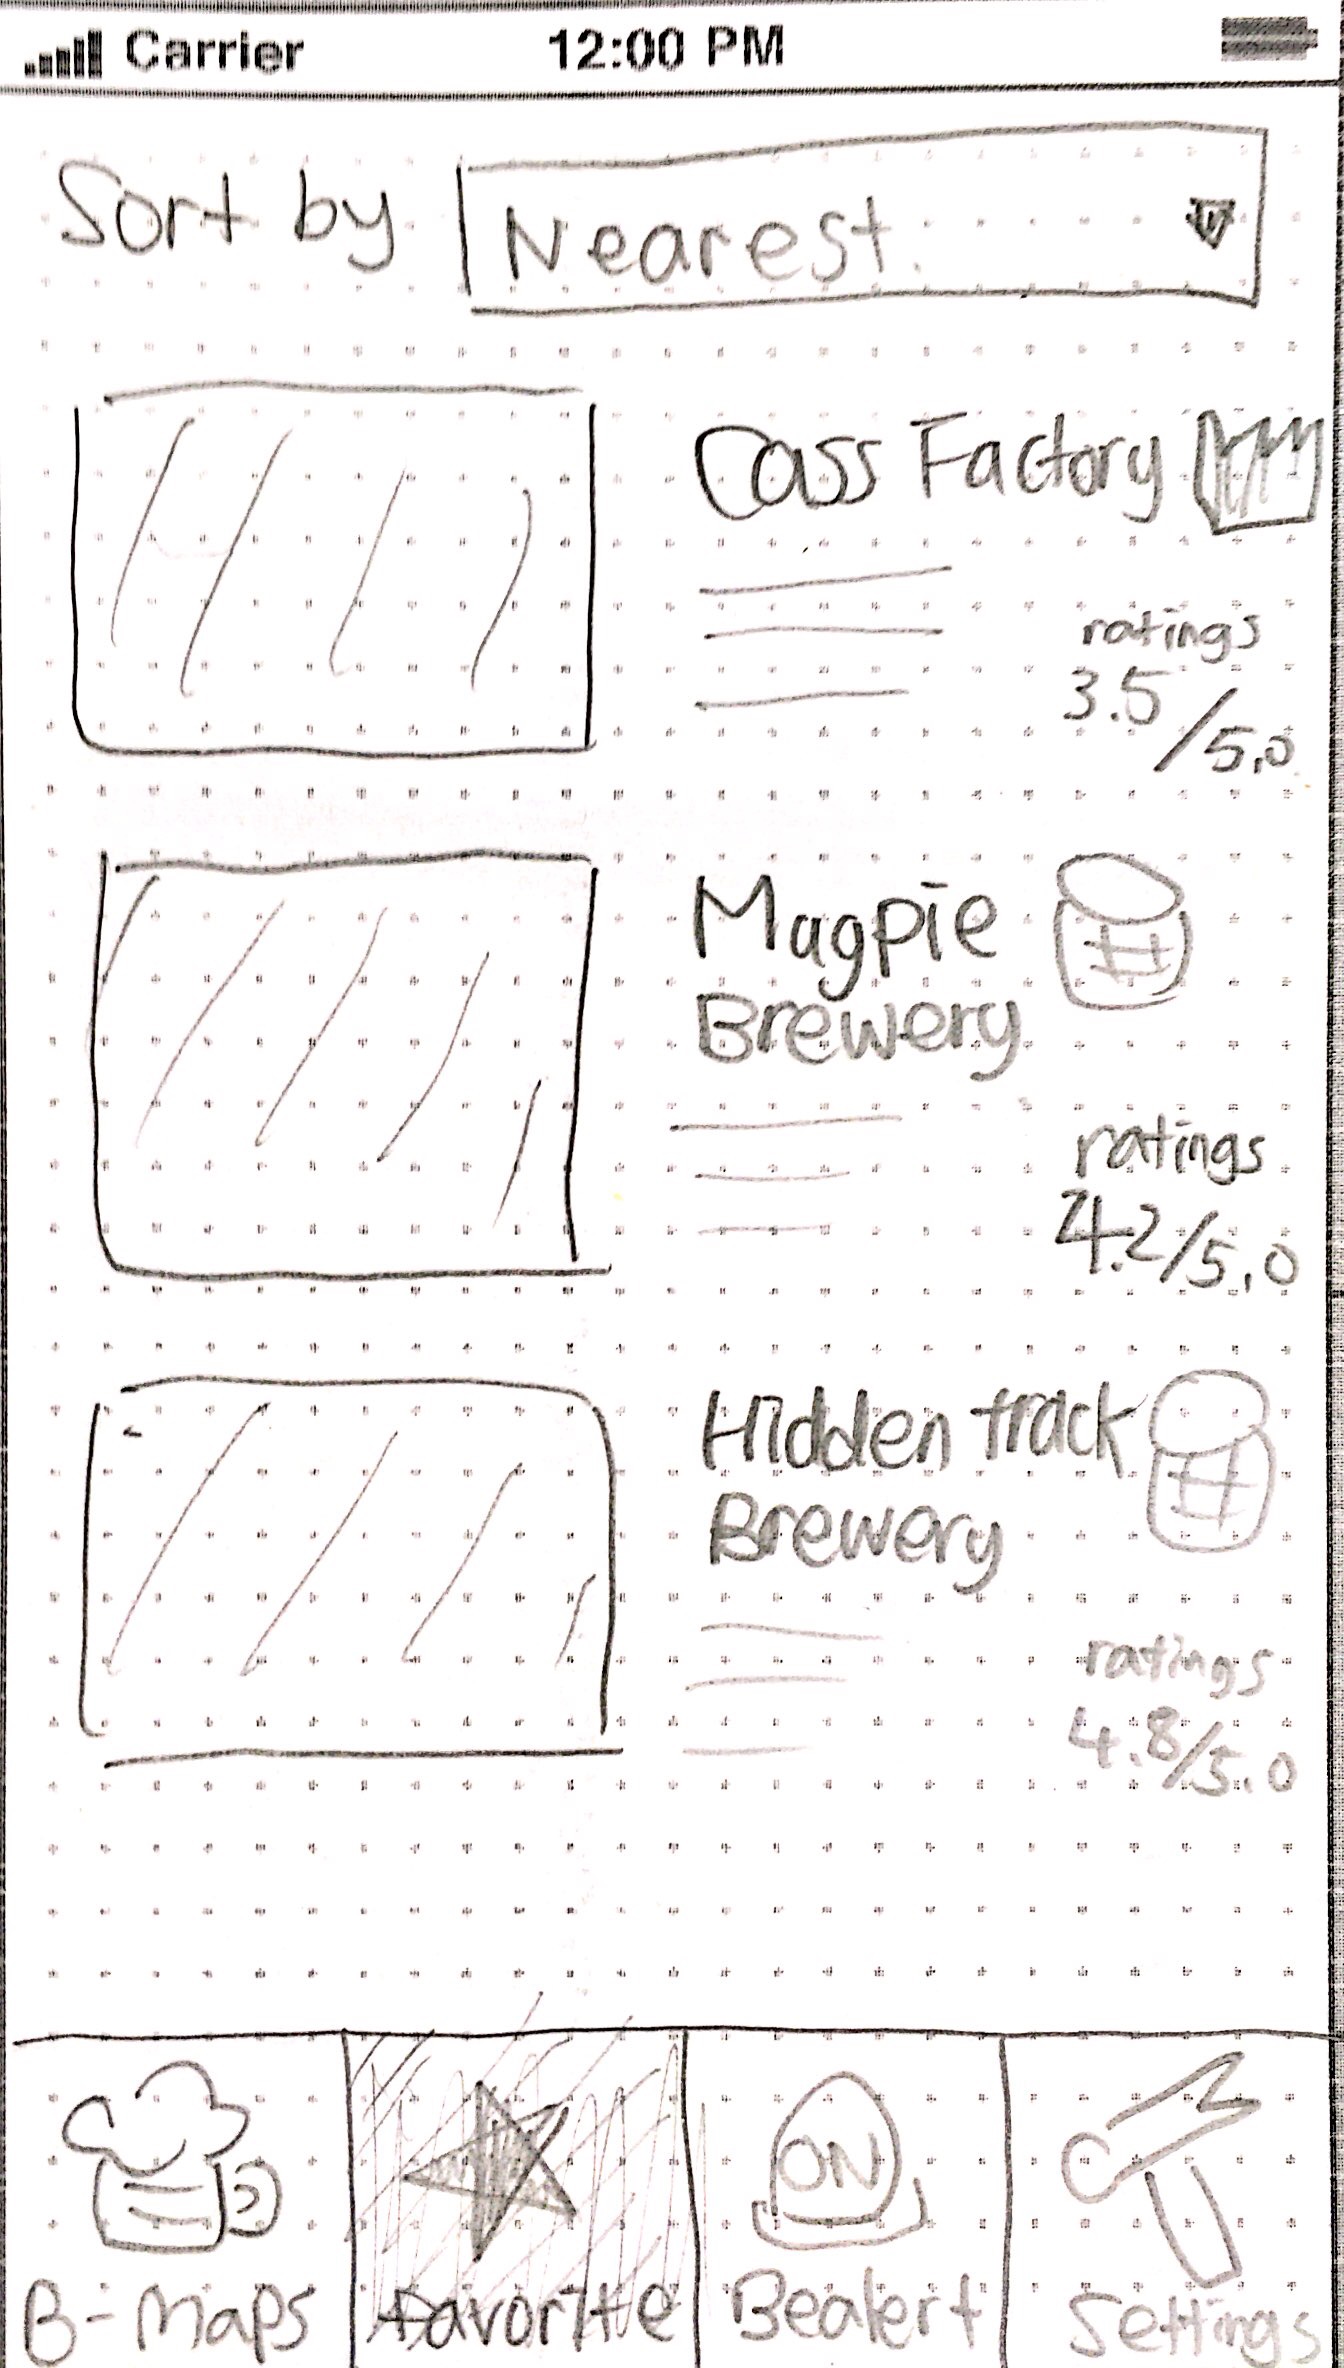 Carrier 12:00 PM
Sort by Nearest
Cass Factory
ratings
3.5/5.0
Magpie
Brewery
ratings
4.2/5.0
Hidden track
Brewery
ratings
4.8/5.0
ON
B-Maps Favorite Bealert Settings